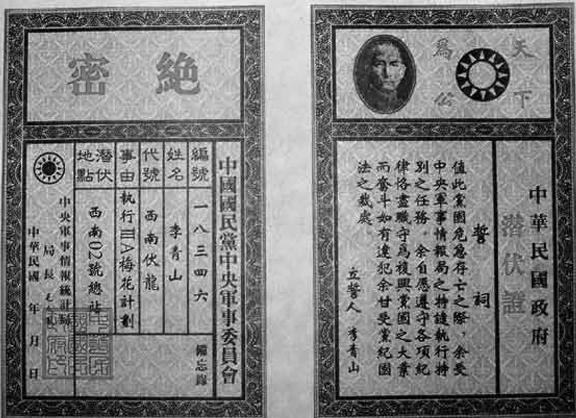 天下
為公
中華民國政府
潛伏證
誓詞
值此黨國危急存亡之際,余受
中央軍事情報局之特執行特
別之任務。余自愿遵守各項紀
律恪盡職守為復興黨國之大業
而奮斗如有違犯余甘受黨紀國
法之裁處
立誓人 李青山
絕密
中國國民黨中央軍事委員會
編號 一八三四六
姓名 李青山
代號 西南伏龍
事由 執行IIIA梅花計劃
潛伏地點 西南02號總站
備忘錄
中央軍事情報統計局
局長
中華民國 年 月 日